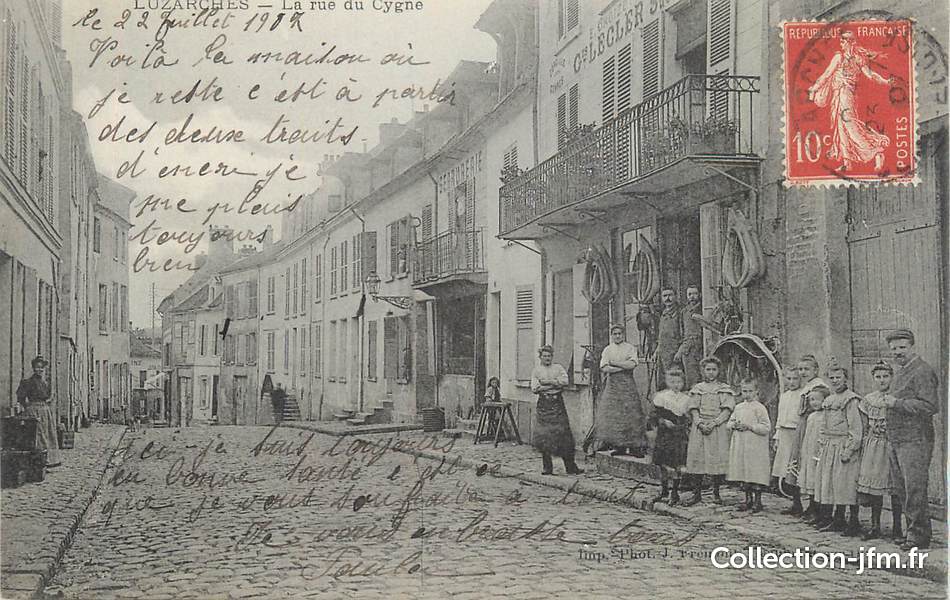 LUZARCHES — La rue du Cygne
le 22 juillet 1907
Voilà la maison où
je reste c'est à partir
des deux traits
d'encre je
me plais
toujours
bien
ici je suis toujours
en bonne santé c'est ce
que je vous souhaite à tous
Je vous embrasse tous
REPUBLIQUE FRANÇAISE
10c
POSTES
LECLER
Imp. Phot. J. Frémont
Collection-jfm.fr